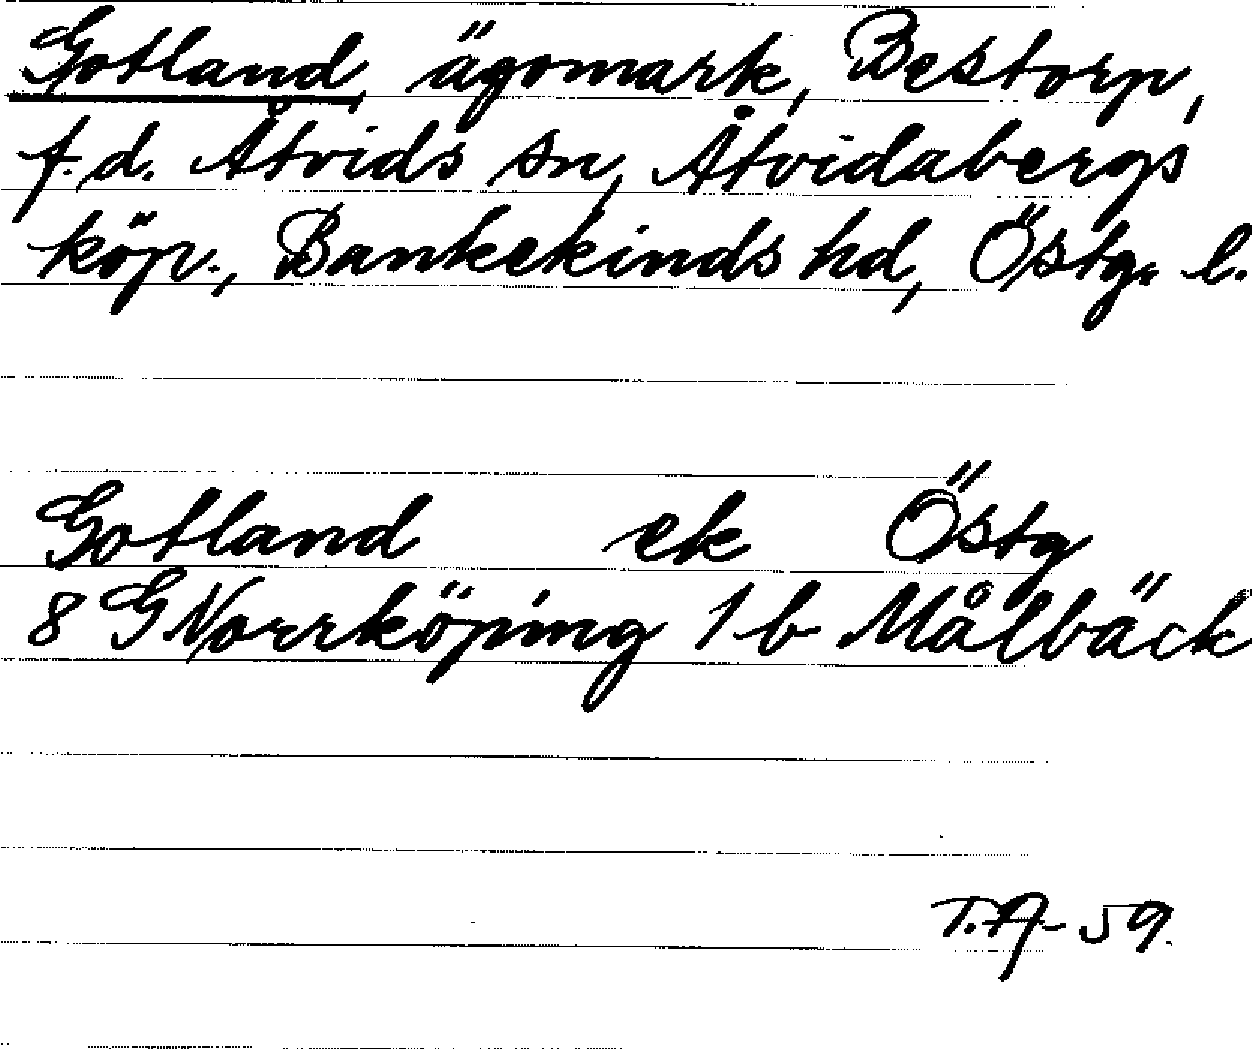 Gotland, ägomark, Bestorp,
f.d. Åtvids sn, Åtvidabergs
köp., Bankekinds hd, Östg. l.
Gotland ek Östg
8 G Norrköping 1 b Målbäck
T.A- 59.